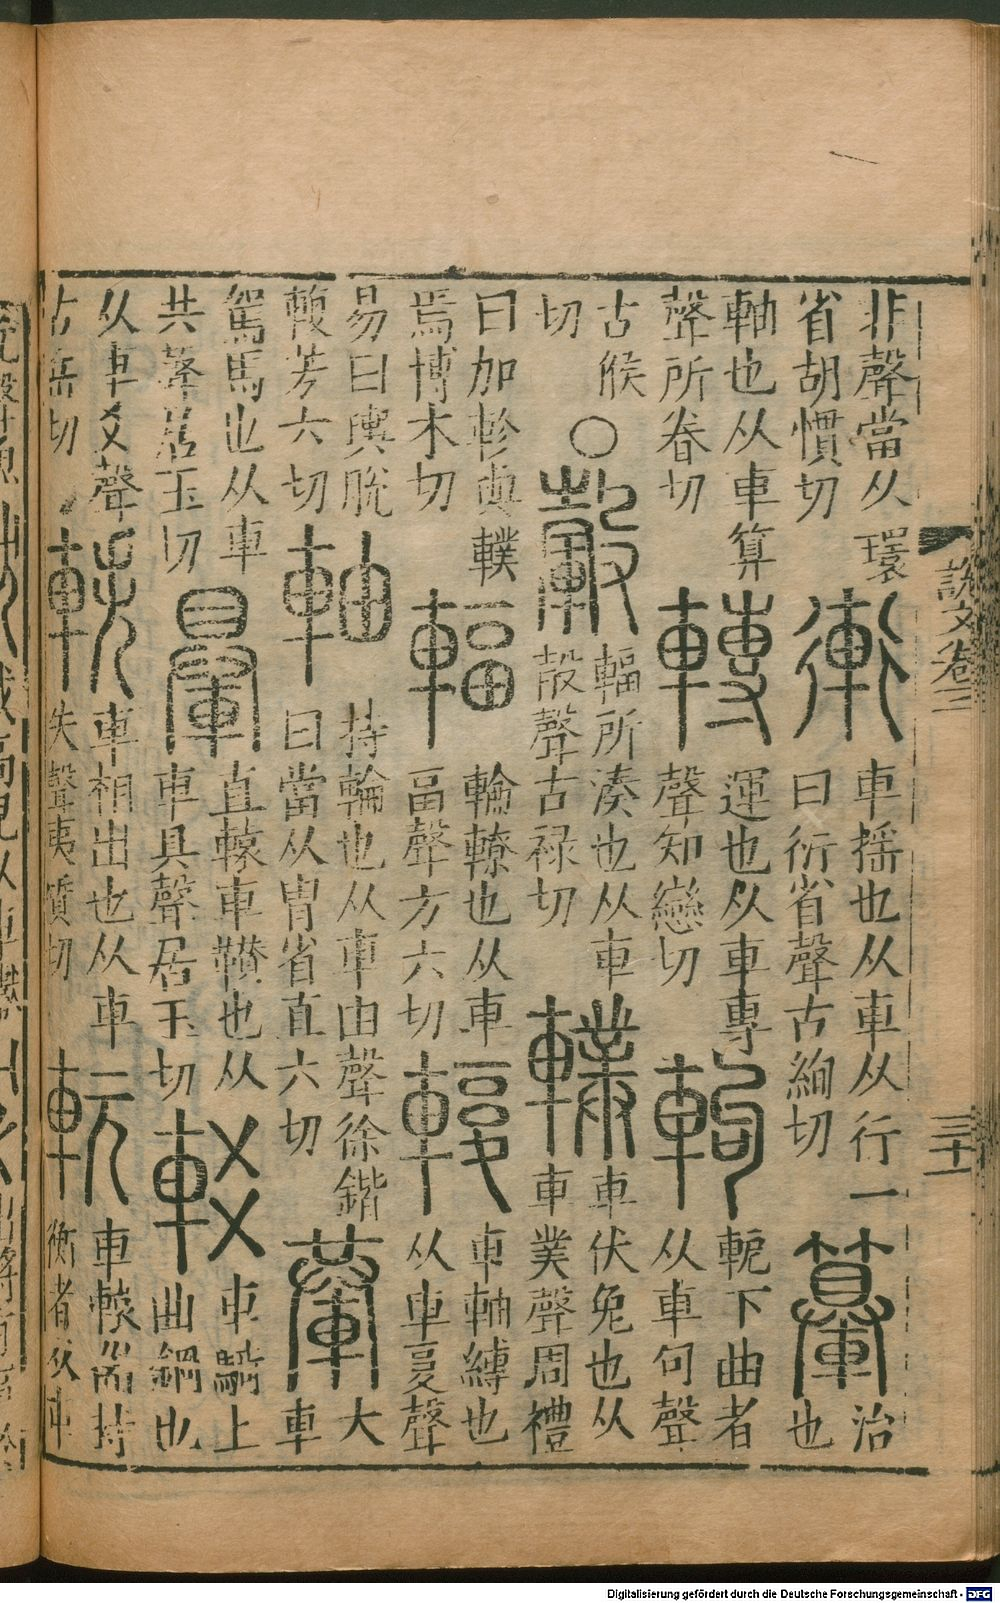 非聲當从環
省胡慣切
車搖也从車从行一
曰衍省聲古絢切
治
也
軸也从車算
聲所眷切
轉
運也从車專
聲知戀切
軥
軛下曲者
从車句聲
古候
切
〇
轂
輻所湊也从車
㱿聲古祿切
轐
車伏兔也从
車菐聲周禮
曰加軫與轐
焉博木切
輻
輪轑也从車
畐聲方六切
輹
車軸縛也
从車复聲
易曰輿脫
輹芳六切
軸
持輪也从車由聲徐鍇
曰當从冑省直六切
輂
大
車
駕馬也从車
共聲居玉切
直轅車鞼也从
車具聲居玉切
車騎上
曲銅也
从車爻聲
古岳切
軼
車相出也从車
失聲夷質切
軏
車轅耑持
衡者从車
說文卷三
三十一
Digitalisierung gefördert durch die Deutsche Forschungsgemeinschaft - DFG